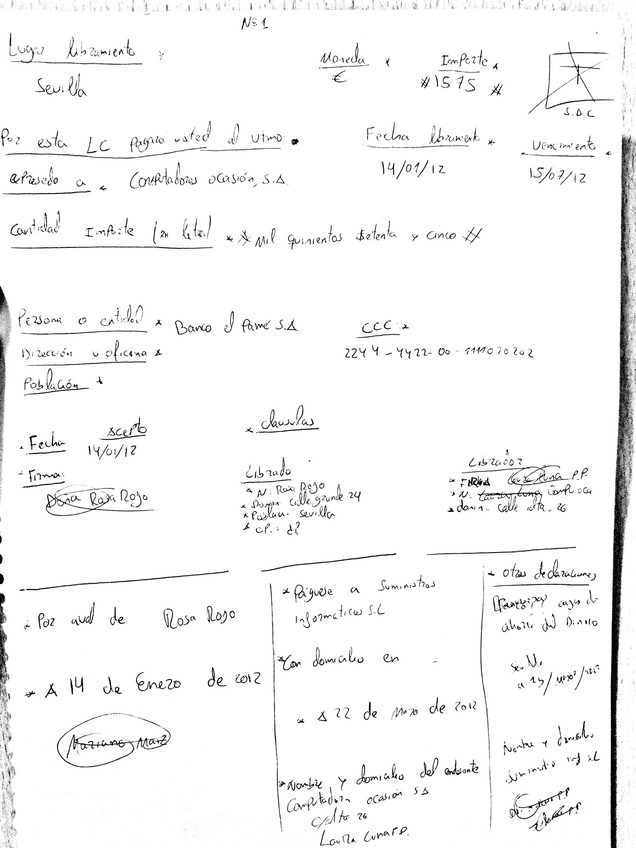 Nº 1
Lugar libramiento *
Sevilla
Moneda *
€
Importe *
# 1575 #
S.D.C
Por esta LC pagará usted al
expresado a * Computadoras ocasión, S.A.
Fecha libramiento *
14/01/12
Vencimiento *
15/07/12
Cantidad Importe (en letra) * * Mil quinientos Setenta y cinco #
Persona o entidad * Banco el Pame S.A.
Dirección u oficina *
Población *
CCC *
2244-4422-00-1111020202
Acepto
Fecha 14/01/12
Firma:
Doña Rosa Rojo
* clausulas
Librado
* N: Rosa Rojo
* Calle grande 24
* Poblac. Sevilla
* C.P.: d?
Librador
* Firma P.P.
* N. Compuoca
* domi: Calle alta, 26
* Por aval de Rosa Rojo
* A 14 de Enero de 2012
Mariano Marz
* Páguese a Suministros
informaticos S.L
* Con domicilio en -
* A 22 de Mayo de 2012
* Nombre y domicilio del endosante
Computadora ocasión SA
c/alta 26
* otras declaraciones
cajas de
ahorro del Dinero
Nombre y domicilio
Suministro inf S.L